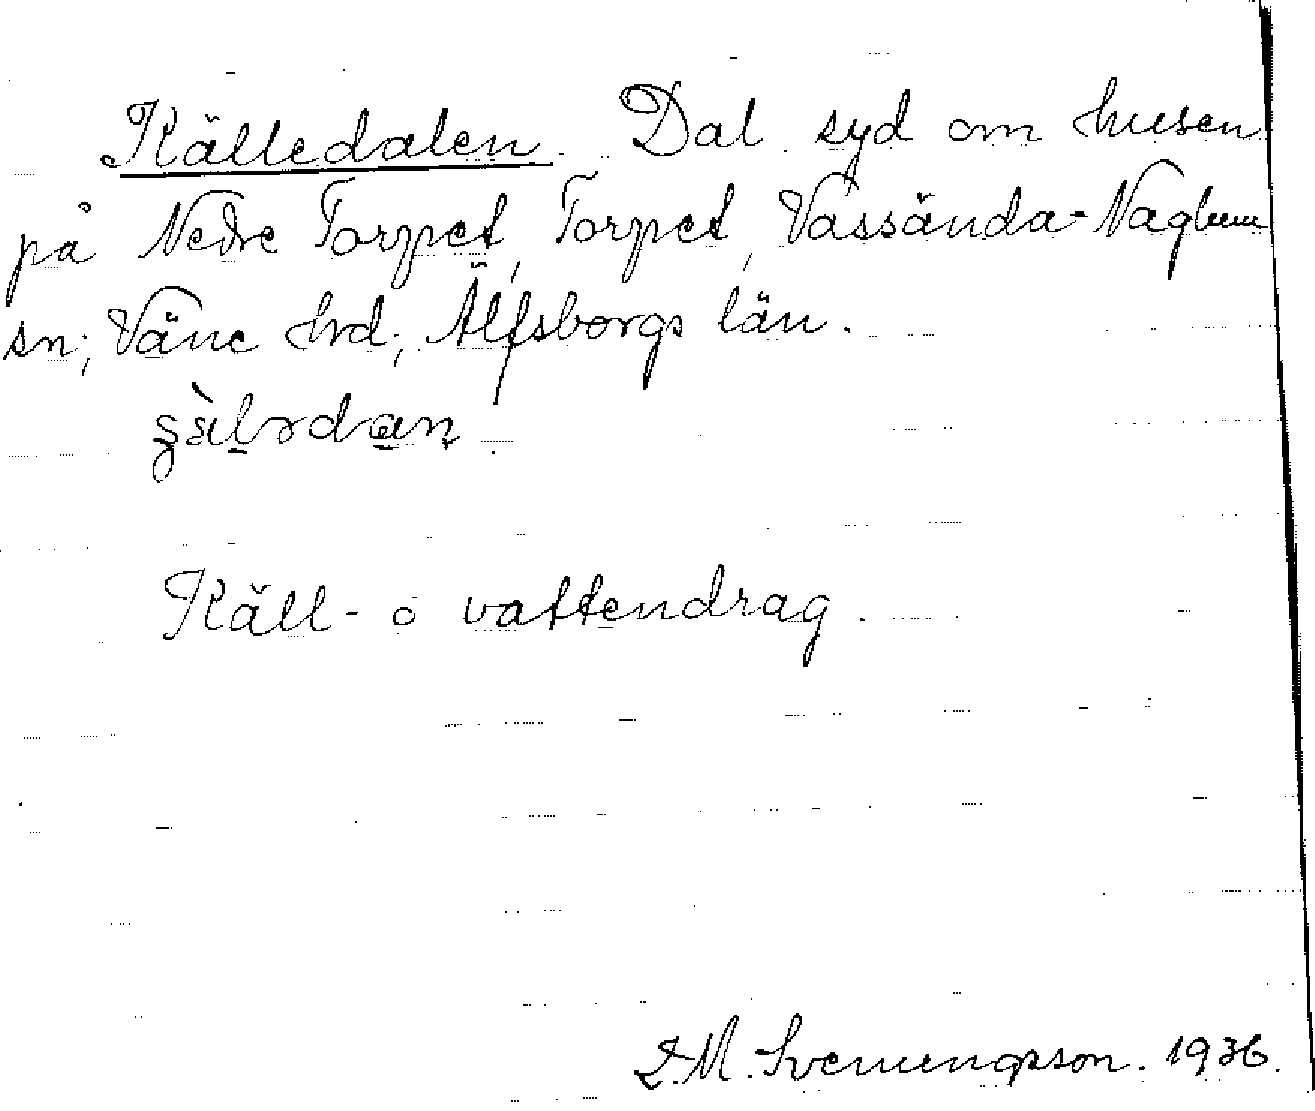 Källedalen. Dal syd om husen
på Nedre Torpet, Torpet, Vassända-Naglum
sn; Väne hrd; Älfsborgs län.
Käll- o vattendrag.
M. Svenungsson. 1936.